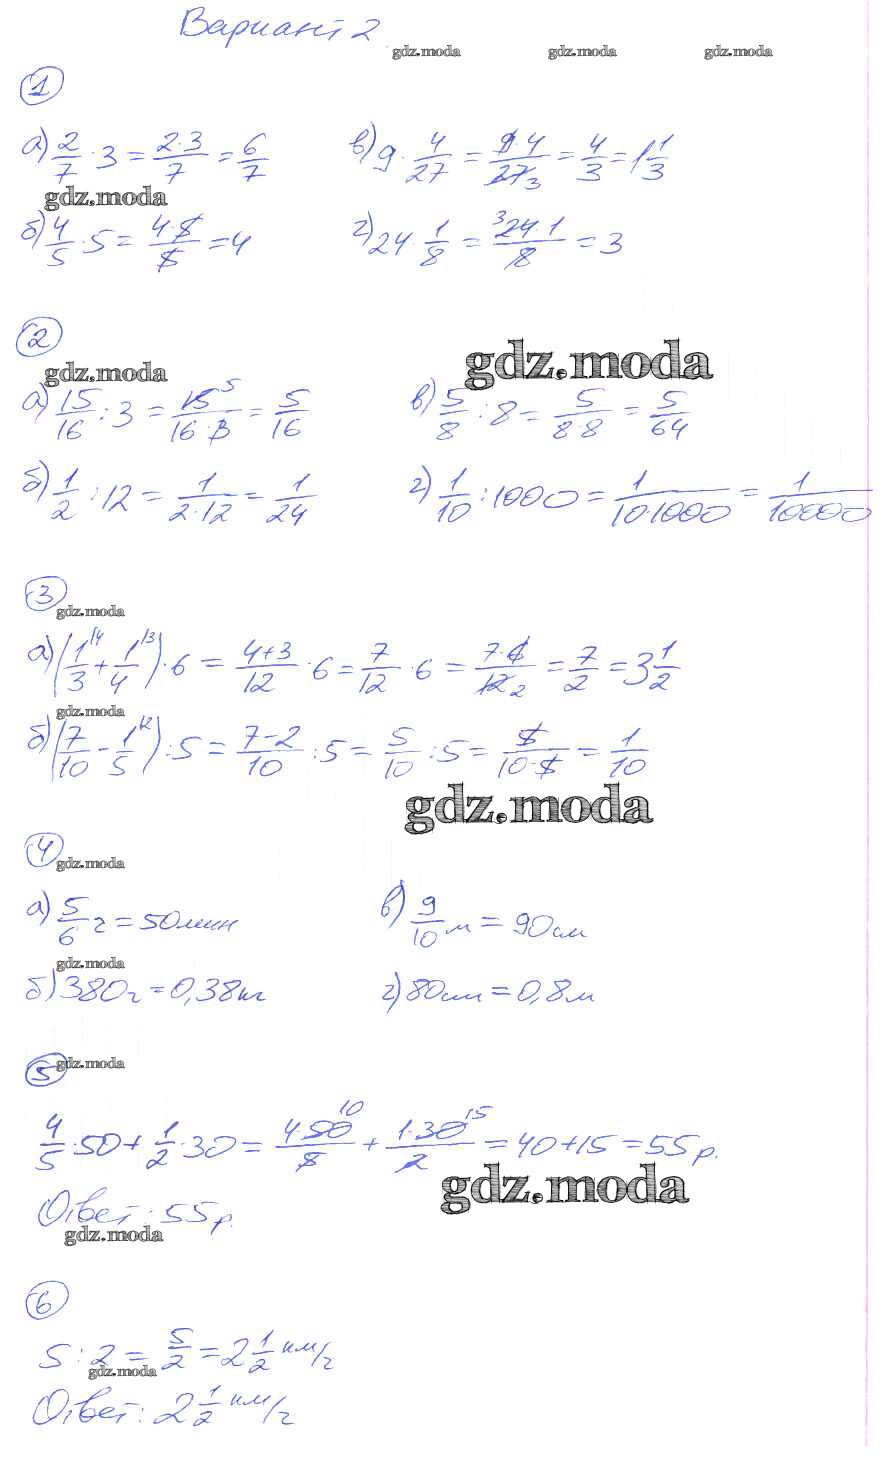 Вариант 2
gdz.moda gdz.moda gdz.moda
1
а) 2/7 · 3 = 2·3/7 = 6/7 в) 9 · 4/27 = 9·4/27 3 = 4/3 = 1 1/3
gdz.moda
б) 4/5 · 5 = 4·5/5 = 4 г) 24 · 1/8 = 3 24·1/8 = 3
2
gdz.moda
gdz.moda
а) 15/16 : 3 = 15 5/16·3 = 5/16 в) 5/8 : 8 = 5/8·8 = 5/64
б) 1/2 : 12 = 1/2·12 = 1/24 г) 1/10 : 1000 = 1/10·1000 = 1/10000
3
gdz.moda
а) (1/3 |4 + 1/4 |3) · 6 = 4+3/12 · 6 = 7/12 · 6 = 7·6/12 2 = 7/2 = 3 1/2
gdz.moda
б) (7/10 - 1/5 |2) : 5 = 7-2/10 : 5 = 5/10 : 5 = 5/10·5 = 1/10
gdz.moda
4
gdz.moda
а) 5/6 г = 50 мин в) 9/10 м = 90 см
gdz.moda
б) 380 г = 0,38 кг г) 80 см = 0,8 м
gdz.moda
5
4/5 · 50 + 1/2 · 30 = 4·50 10/5 + 1·30 15/2 = 40 + 15 = 55 р.
gdz.moda
Ответ: 55 р.
gdz.moda
6
5 : 2 = 5/2 = 2 1/2 км/г
gdz.moda
Ответ: 2 1/2 км/г